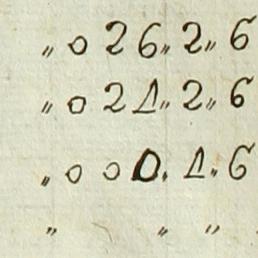 „ 0 2 6 „ 2 „ 6
„ 0 2 1 „ 2 „ 6
„ 0 0 0 „ 1 „ 6
„ „ „